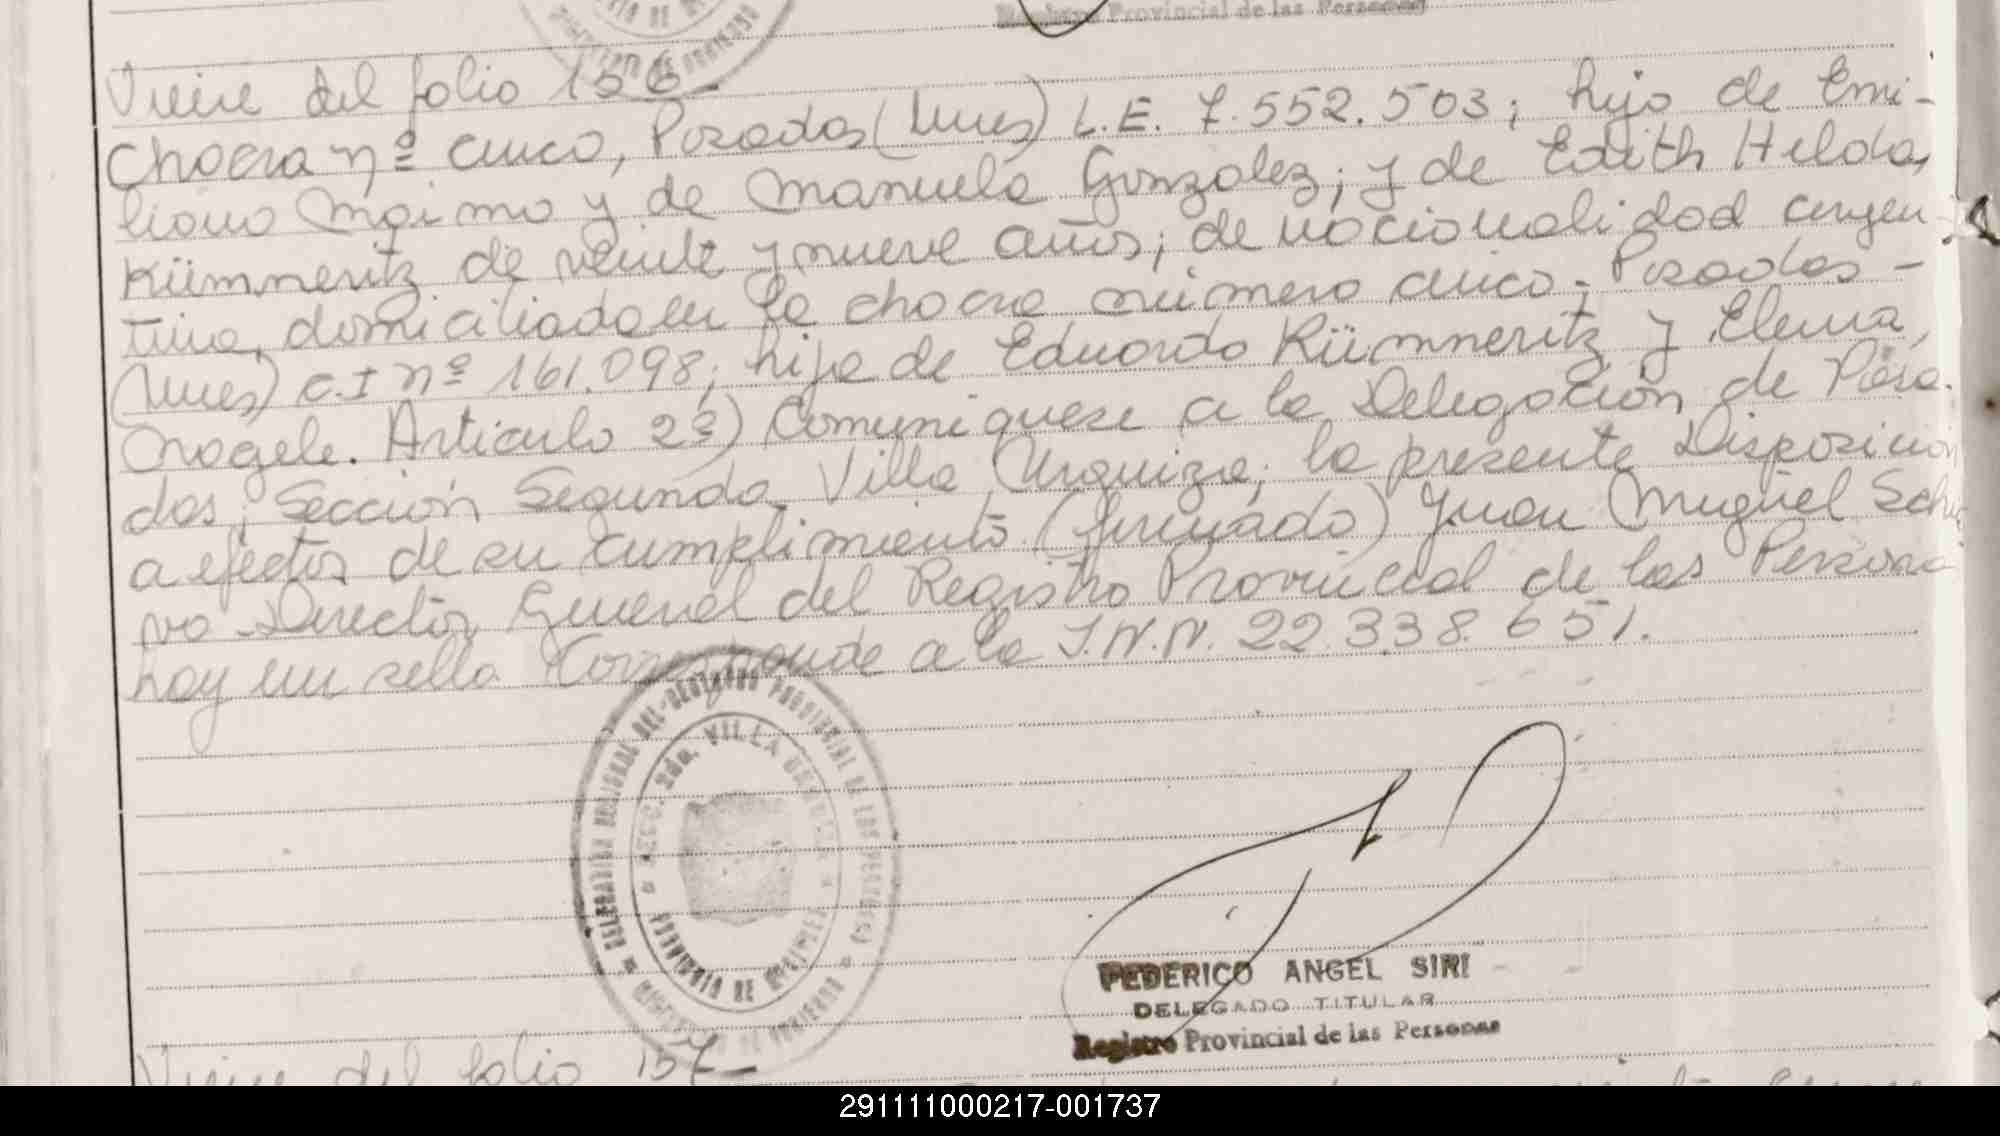 Registro Provincial de las Personas
Viene del folio 156-
Chacra nº cinco, Posadas (Mnes) L.E. 7.552.503; hijo de Emi-
liano Maimo y de Manuela Gonzalez; y de Edith Hilda,
Kümmeritz de veinte y nueve años; de nacionalidad argen-
tina, domiciliada en la chacra número cinco - Posadas -
(Mnes) C.I nº 161.098; hija de Eduardo Kümmeritz y Elena,
Nagele. Articulo 2º) Comuniquese a la Delegación de Posa-
das, Sección Segunda Villa Urquiza, la presente Disposición
a efectos de su cumplimiento. (firmado) Juan Miguel Schia
vo Director General del Registro Provincial de las Persona
hay un sello. Corresponde a la I.N.N. 22.338.651.
DELEGACION REGIONAL DEL REGISTRO PROVINCIAL DE LAS PERSONAS
MINISTERIO DE GOBIERNO
SECC. 2da. VILLA URQUIZA
PROVINCIA DE MISIONES
FEDERICO ANGEL SIRI
DELEGADO TITULAR
Registro Provincial de las Personas
Viene del folio 157-
291111000217-001737